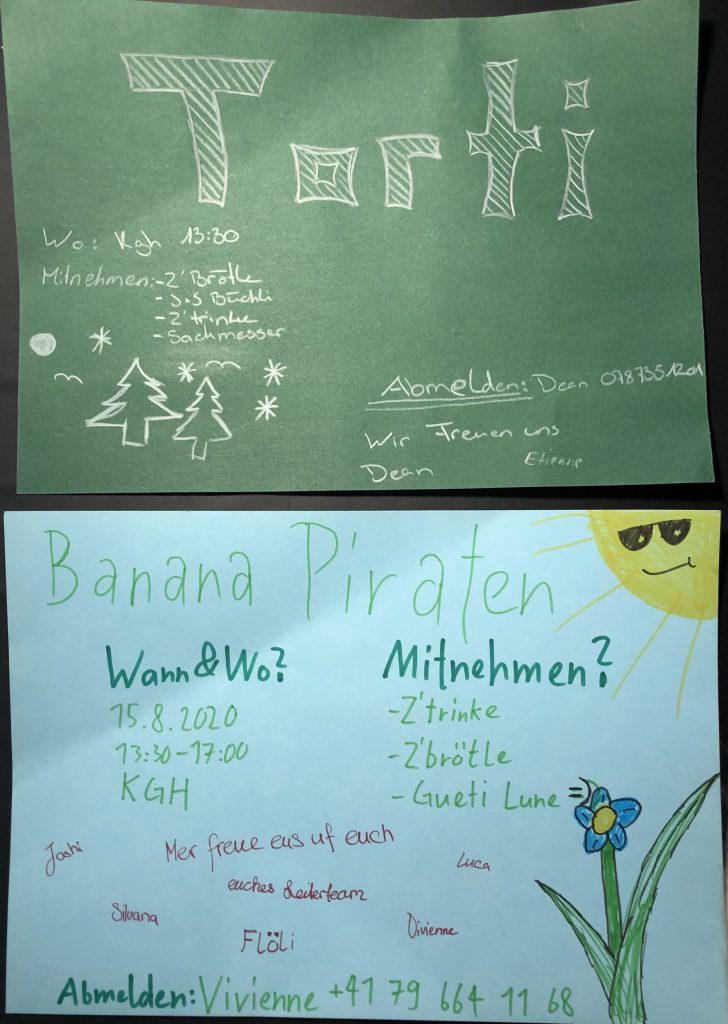 Torti
Wo: Kgh 13:30
Mitnehmen: - Z'Brötle
- J+S Büchli
- Z'trinke
- Sackmesser
Abmelden: Dean 0787351201
Wir Freuen uns
Dean Etienne
Banana Piraten
Wann & Wo?
15.8.2020
13:30-17:00
KGH
Mitnehmen?
- Z'trinke
- Z'brötle
- Gueti Lune =)
Joshi
Mer freue eus uf euch
Luca
euches Leiterteam
Silvana
Flöli
Vivienne
Abmelden: Vivienne +41 79 664 11 68